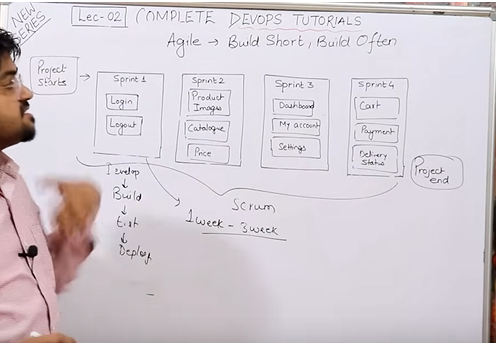 NEW
SERIES
Lec-02
COMPLETE DEVOPS TUTORIALS
Agile → Build Short, Build Often
Project
Starts
Sprint 1
Login
Logout
Sprint 2
Product
Images
Catalogue
Price
Sprint 3
Dashboard
My account
Settings
Sprint 4
Cart
Payment
Delivery
Status
Project
end
Develop
↓
Build
↓
Test
↓
Deploy
Scrum
1 week - 3 week